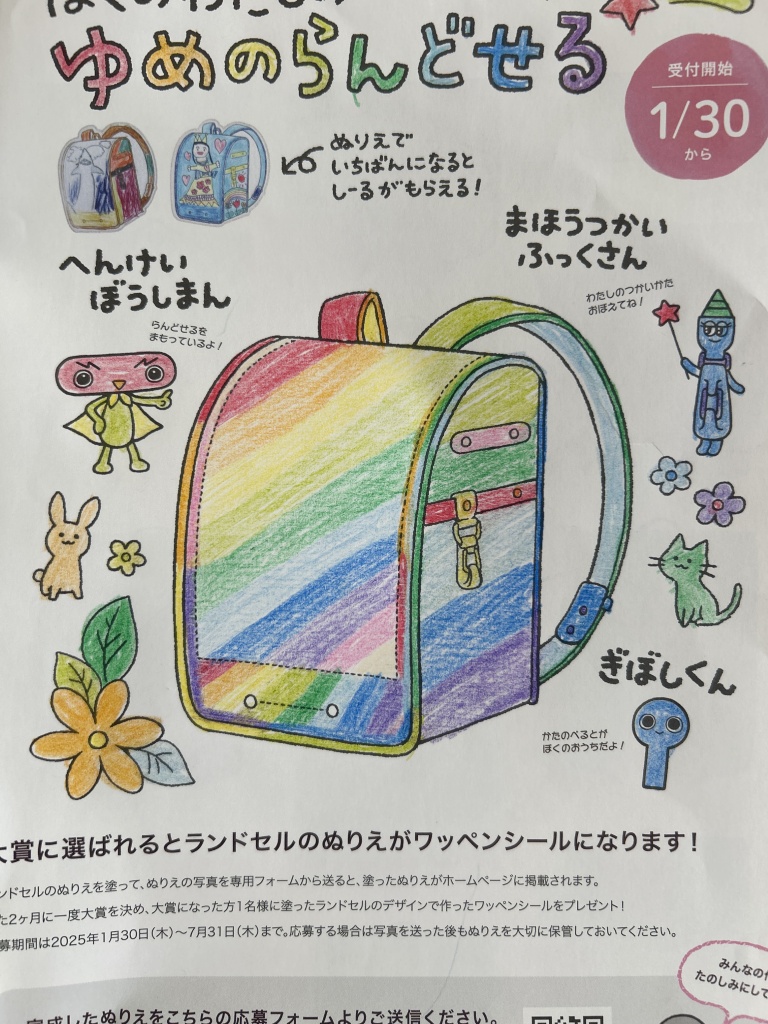 ゆめのらんどせる
受付開始
1/30
から
ぬりえで
いちばんになると
しーるがもらえる!
へんけい
ぼうしまん
らんどせるを
まもっているよ!
まほうつかい
ふっくさん
わたしのつかいかた
おぼえてね!
ぎぼしくん
かたのべるとが
ぼくのおうちだよ!
大賞に選ばれるとランドセルのぬりえがワッペンシールになります!
ンドセルのぬりえを塗って、ぬりえの写真を専用フォームから送ると、塗ったぬりえがホームページに掲載されます。
た2ヶ月に一度大賞を決め、大賞になった方1名様に塗ったランドセルのデザインで作ったワッペンシールをプレゼント!
募期間は2025年1月30日(木)〜7月31日(木)まで。応募する場合は写真を送った後もぬりえを大切に保管しておいてください。
みんなの作
たのしみにして
完成したぬりえをこちらの応募フォームよりご送信ください。